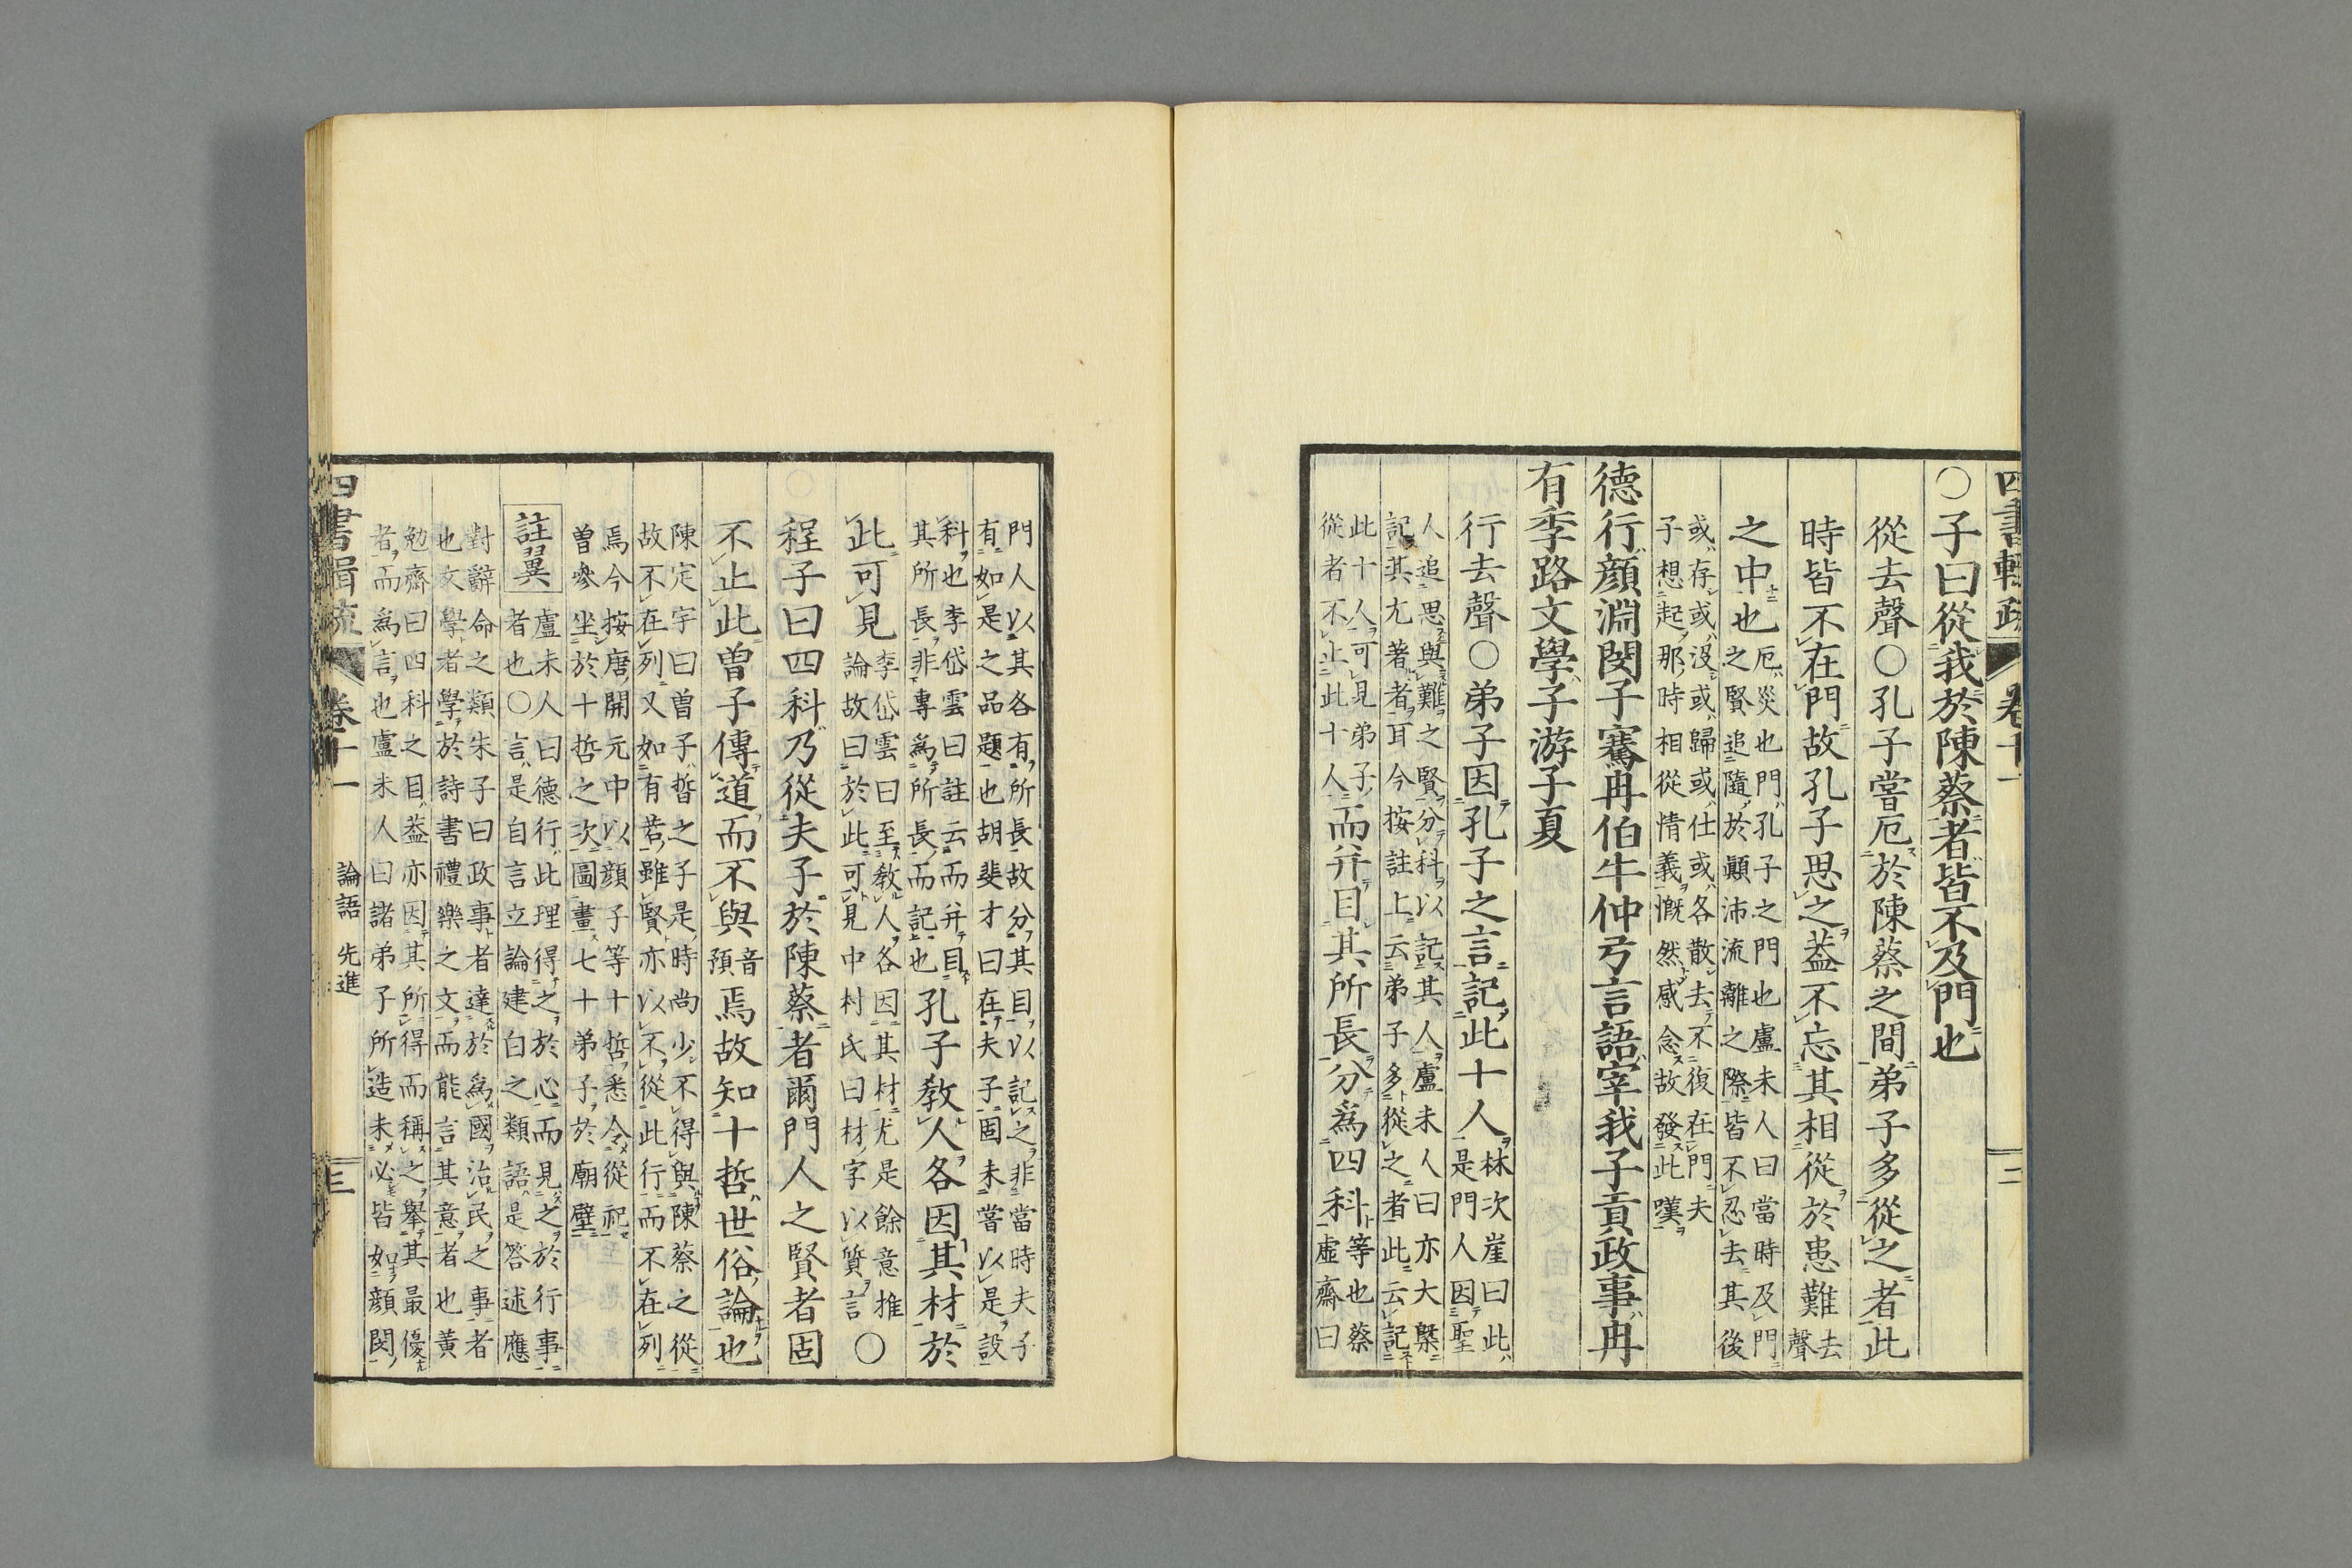 四書輯疏 卷十一 二
○子曰從我於陳蔡者皆不及門也
從去聲○孔子嘗厄於陳蔡之間弟子多從之者此
時皆不在門故孔子思之葢不忘其相從於患難去聲
之中也厄災也門孔子之門也盧未人曰當時及門
之賢追隨於顚沛流離之際皆不忍去其後
或存或沒或歸或仕或各散去不復在門夫
子想起那時相從情義慨然感念故發此嘆
德行顏淵閔子騫冉伯牛仲弓言語宰我子貢政事冉
有季路文學子游子夏
行去聲○弟子因孔子之言記此十人林次崖曰此
是門人因聖
人追思與難之賢分科以記其人盧未人曰亦大槩
記其尤著者耳今按註上云弟子多從之者此云記
此十人可見弟子
從者不止此十人而并目其所長分爲四科等也蔡
虛齋曰
門人以其各有所長故分其目以記之非當時夫子
有如是之品題也胡斐才曰在夫子固未嘗以是設
科也李岱雲曰註云而并目
其所長非專爲所長而記也孔子教人各因其材於
此可見李岱雲曰至教人各因其材尤是餘意推
論故曰於此可見中村氏曰材字以質言○
程子曰四科乃從夫子於陳蔡者爾門人之賢者固
不止此曾子傳道而不與音預焉故知十哲世俗論也
陳定宇曰曾子晳之子是時尚少不得與陳蔡之從
故不在列又如有若雖賢亦以不從此行而不在列
焉今按唐開元中以顏子等十哲悉令從祀
曾參坐於十哲之次圖畫七十弟子於廟壁
註異盧未人曰德行此理得之於心而見之於行事
者也○言是自言立論建白之類語是答述應
對辭命之類朱子曰政事者達於爲國治民之事者
也文學者學於詩書禮樂之文而能言其意者也黃
勉齋曰四科之目葢亦因其所得而稱之舉其最優
者而爲言也盧未人曰諸弟子所造未必皆如顏閔
四書輯疏 卷十一 論語 先進 三